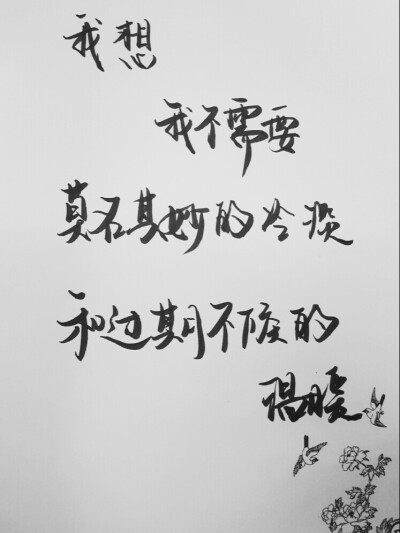 我想
我不需要
莫名其妙的冷淡
和过期不候的
温暖